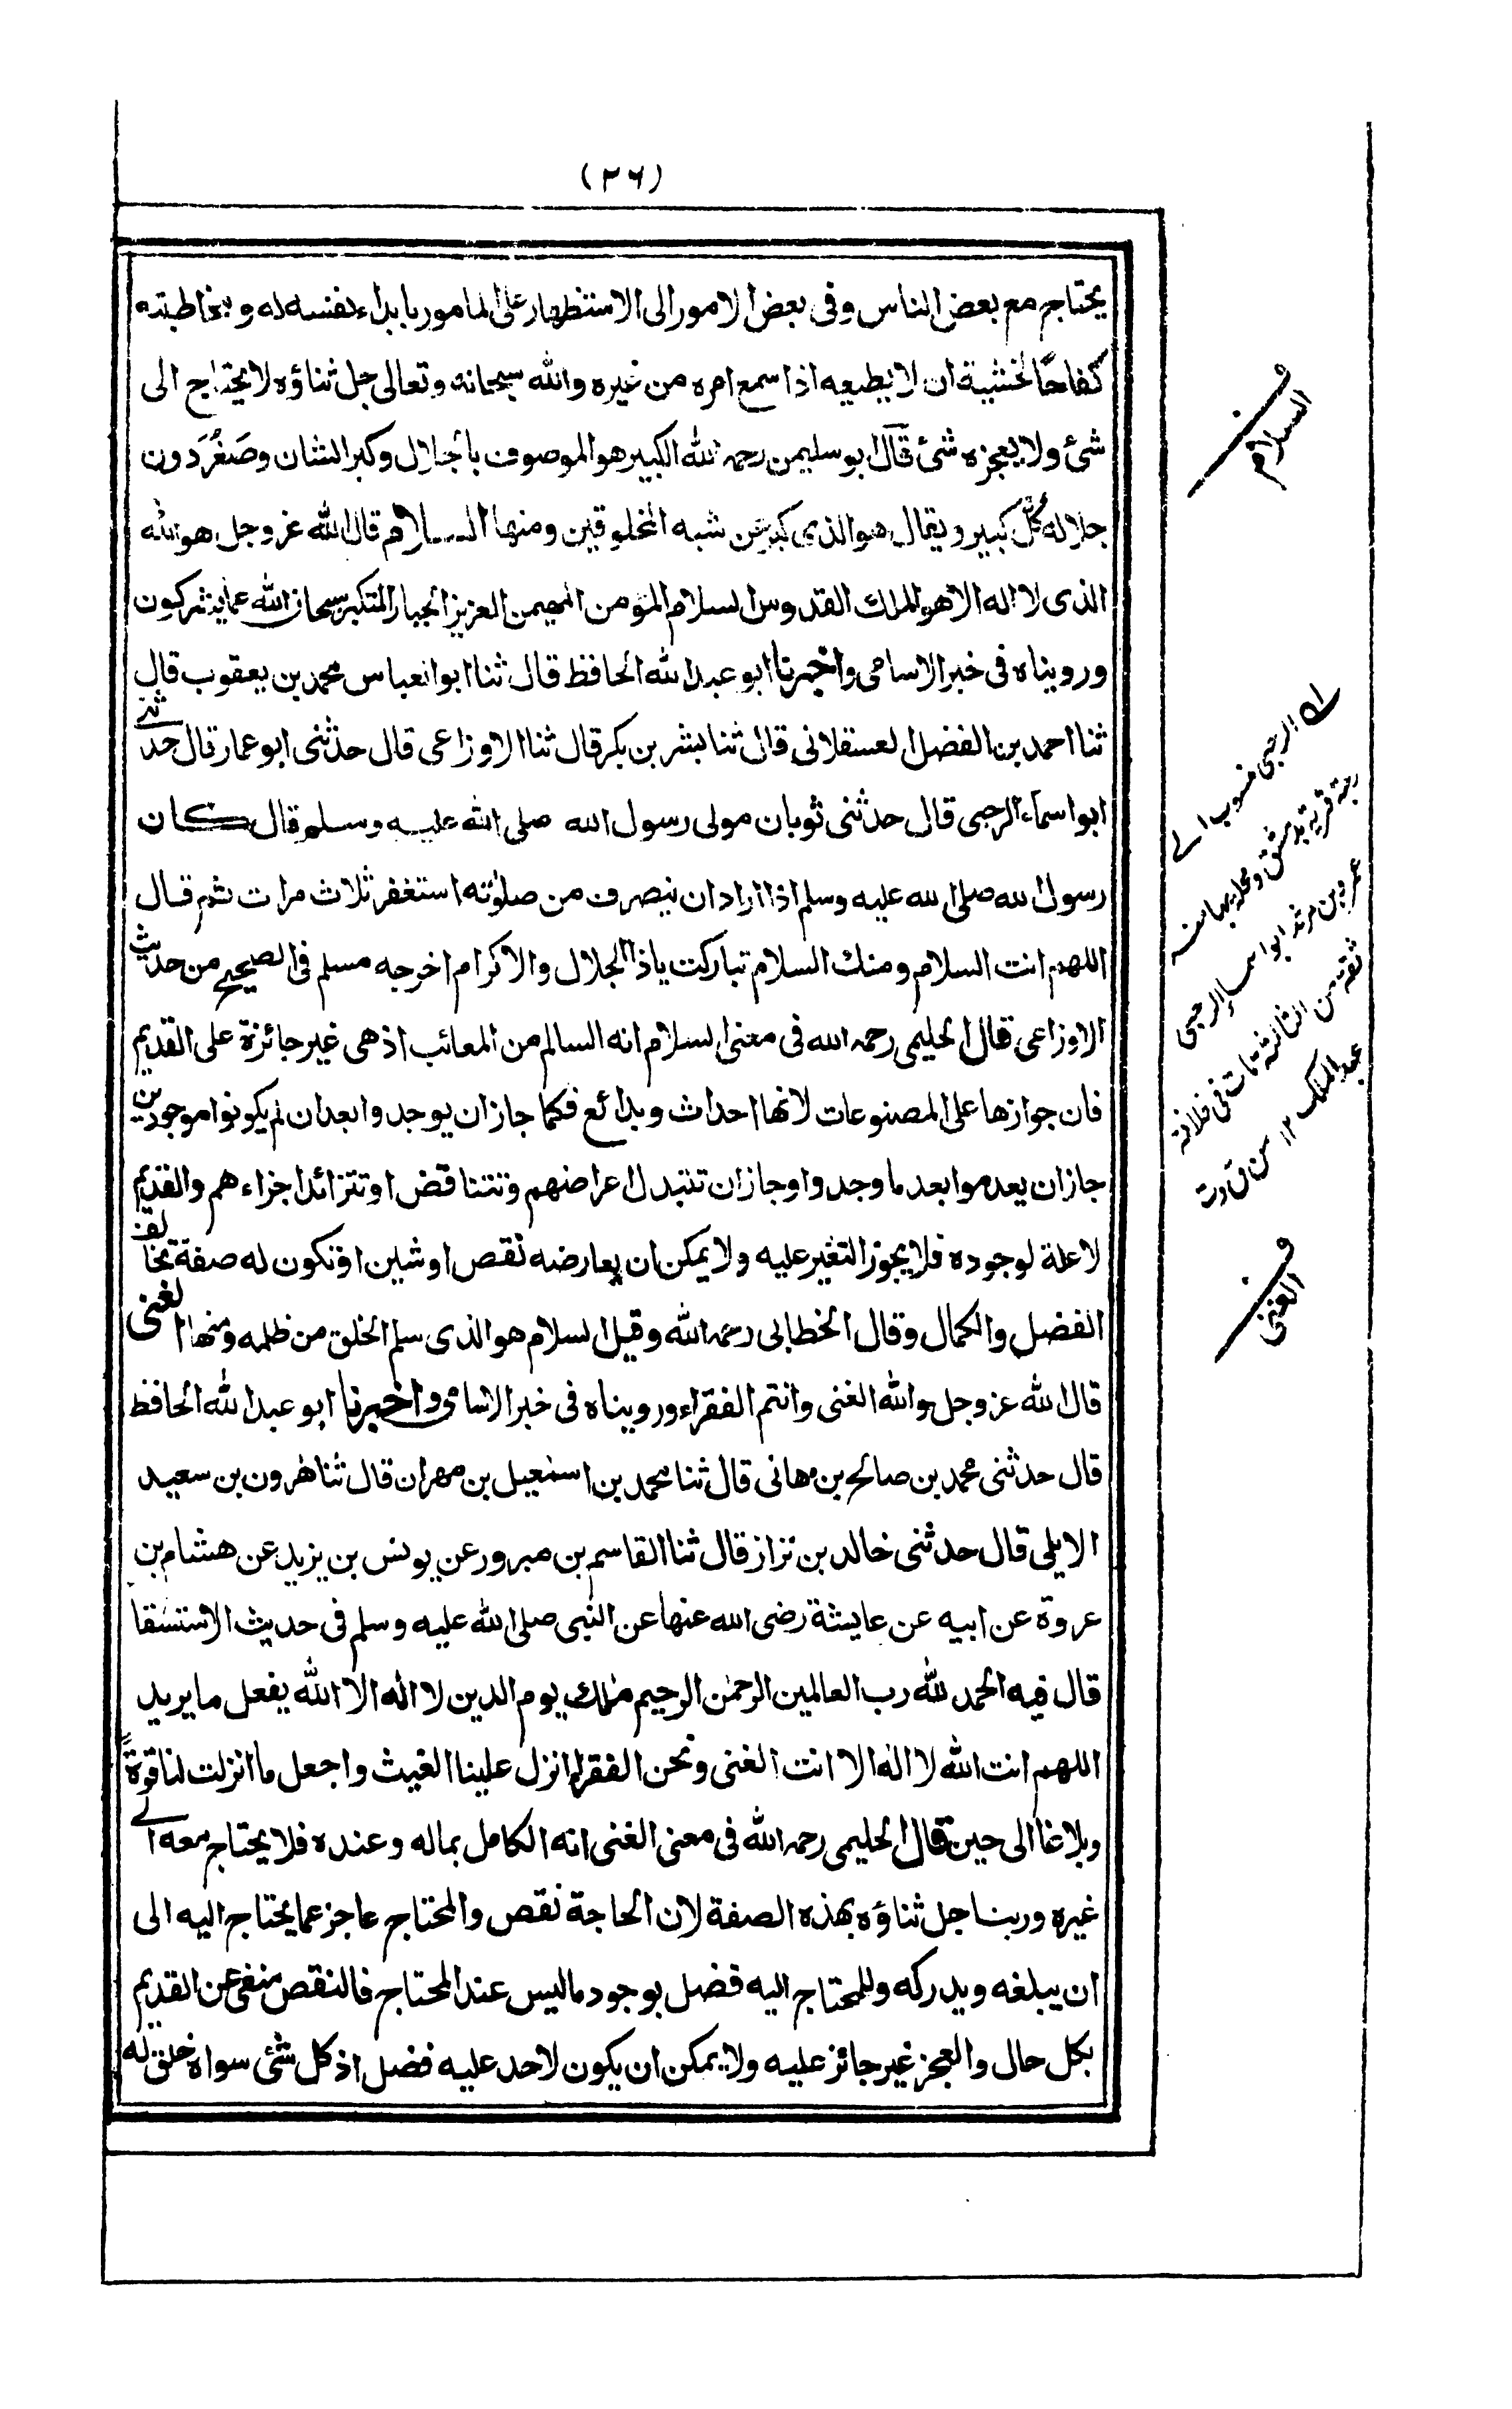 (۲۶)
يحتاج مع بعض الناس وفي بعض الامور الى الاستظهار على المامور بابداء نفسه له وبمخاطبته
كفاحًا لخشية ان لا يطيعه اذا سمع امره من غيره والله سبحانه وتعالى جل ثناؤه لا يحتاج الى
شئ ولا يعجزه شئ قال ابو سليمن رحمه الله الكبير هو الموصوف بالجلال وكبر الشان وصَغُرَ دون
جلاله كُلُّ كبير ويقال هو الذي كبر عن شبه المخلوقين ومنها السلام قال الله عز وجل هو الله
الذى لا اله الا هو الملك القدوس السلام المؤمن المهيمن العزيز الجبار المتكبر سبحان الله عما يشركون
ورويناه فى خبر الاسامى واخبرنا ابو عبد الله الحافظ قال ثنا ابو العباس محمد بن يعقوب قال
ثنا احمد بن الفضل العسقلانى قال ثنا بشر بن بكر قال ثنا الاوزاعى قال حدثنى ابو عمار قال حدثنى
ابو اسماء الرحبى قال حدثنى ثوبان مولى رسول الله صلى الله عليه وسلم قال كان
رسول الله صلى الله عليه وسلم اذا اراد ان ينصرف من صلوٰته استغفر ثلاث مرات ثم قال
اللهم انت السلام ومنك السلام تباركت يا ذا الجلال والاكرام اخرجه مسلم فى الصحيح من حديث
الاوزاعى قال الحليمى رحمه الله فى معنى السلام انه السالم من المعائب اذ هى غير جائزة على القديم
فان جوازها على المصنوعات لانها احداث وبدائع فكما جاز ان يوجدوا بعد ان لم يكونوا موجودين
جاز ان يعدموا بعد ما وجدوا وجاز ان تتبدل اعراضهم وتتناقض او تتزائد اجزاءهم والقديم
لا علة لوجوده فلا يجوز التغير عليه ولا يمكن ان يعارضه نقص او شين او تكون له صفة تخالف
الفضل والكمال وقال الخطابى رحمه الله وقيل السلام هو الذى سلم الخلق من ظلمه ومنها الغنى
قال الله عز وجل والله الغنى وانتم الفقراء ورويناه فى خبر الاسامى واخبرنا ابو عبد الله الحافظ
قال حدثنى محمد بن صالح بن هانى قال ثنا محمد بن اسمٰعيل بن مهران قال ثنا هٰرون بن سعيد
الايلى قال حدثنى خالد بن نزار قال ثنا القاسم بن مبرور عن يونس بن يزيد عن هشام بن
عروة عن ابيه عن عايشة رضى الله عنها عن النبى صلى الله عليه وسلم فى حديث الاستسقا
قال فيه الحمد لله رب العالمين الرحمٰن الرحيم مٰلك يوم الدين لا اله الا الله يفعل ما يريد
اللهم انت الله لا اله الا انت الغنى ونحن الفقراء انزل علينا الغيث واجعل ما انزلت لنا قوةً
وبلاغا الى حين قال الحليمى رحمه الله فى معنى الغنى انه الكامل بماله وعنده فلا يحتاج معه الى
غيره وربنا جل ثناؤه بهذه الصفة لان الحاجة نقص والمحتاج عاجز عما يحتاج اليه الى
ان يبلغه ويدركه وللمحتاج اليه فضل بوجود ما ليس عند المحتاج فالنقص منفى عن القديم
بكل حال والعجز غير جائز عليه ولا يمكن ان يكون لاحد عليه فضل اذ كل شئ سواه خلق له
السلام
الرحبى منسوب الے
رحبة قرية بدمشق ومحلة بها
عمرو بن مرثد ابو اسماء الرحبى
ثقة من الثالثة مات فى خلافة
عبد الملك ۱۲
الغنى